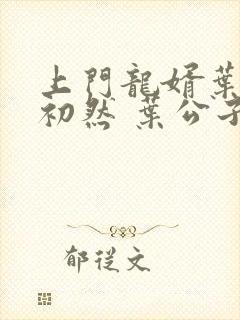 上門龍婿葉
初然 葉公子
郁從文